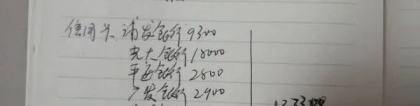 信用卡 浦发银行 9300
光大银行 18000
平安银行 2800
广发银行 2900